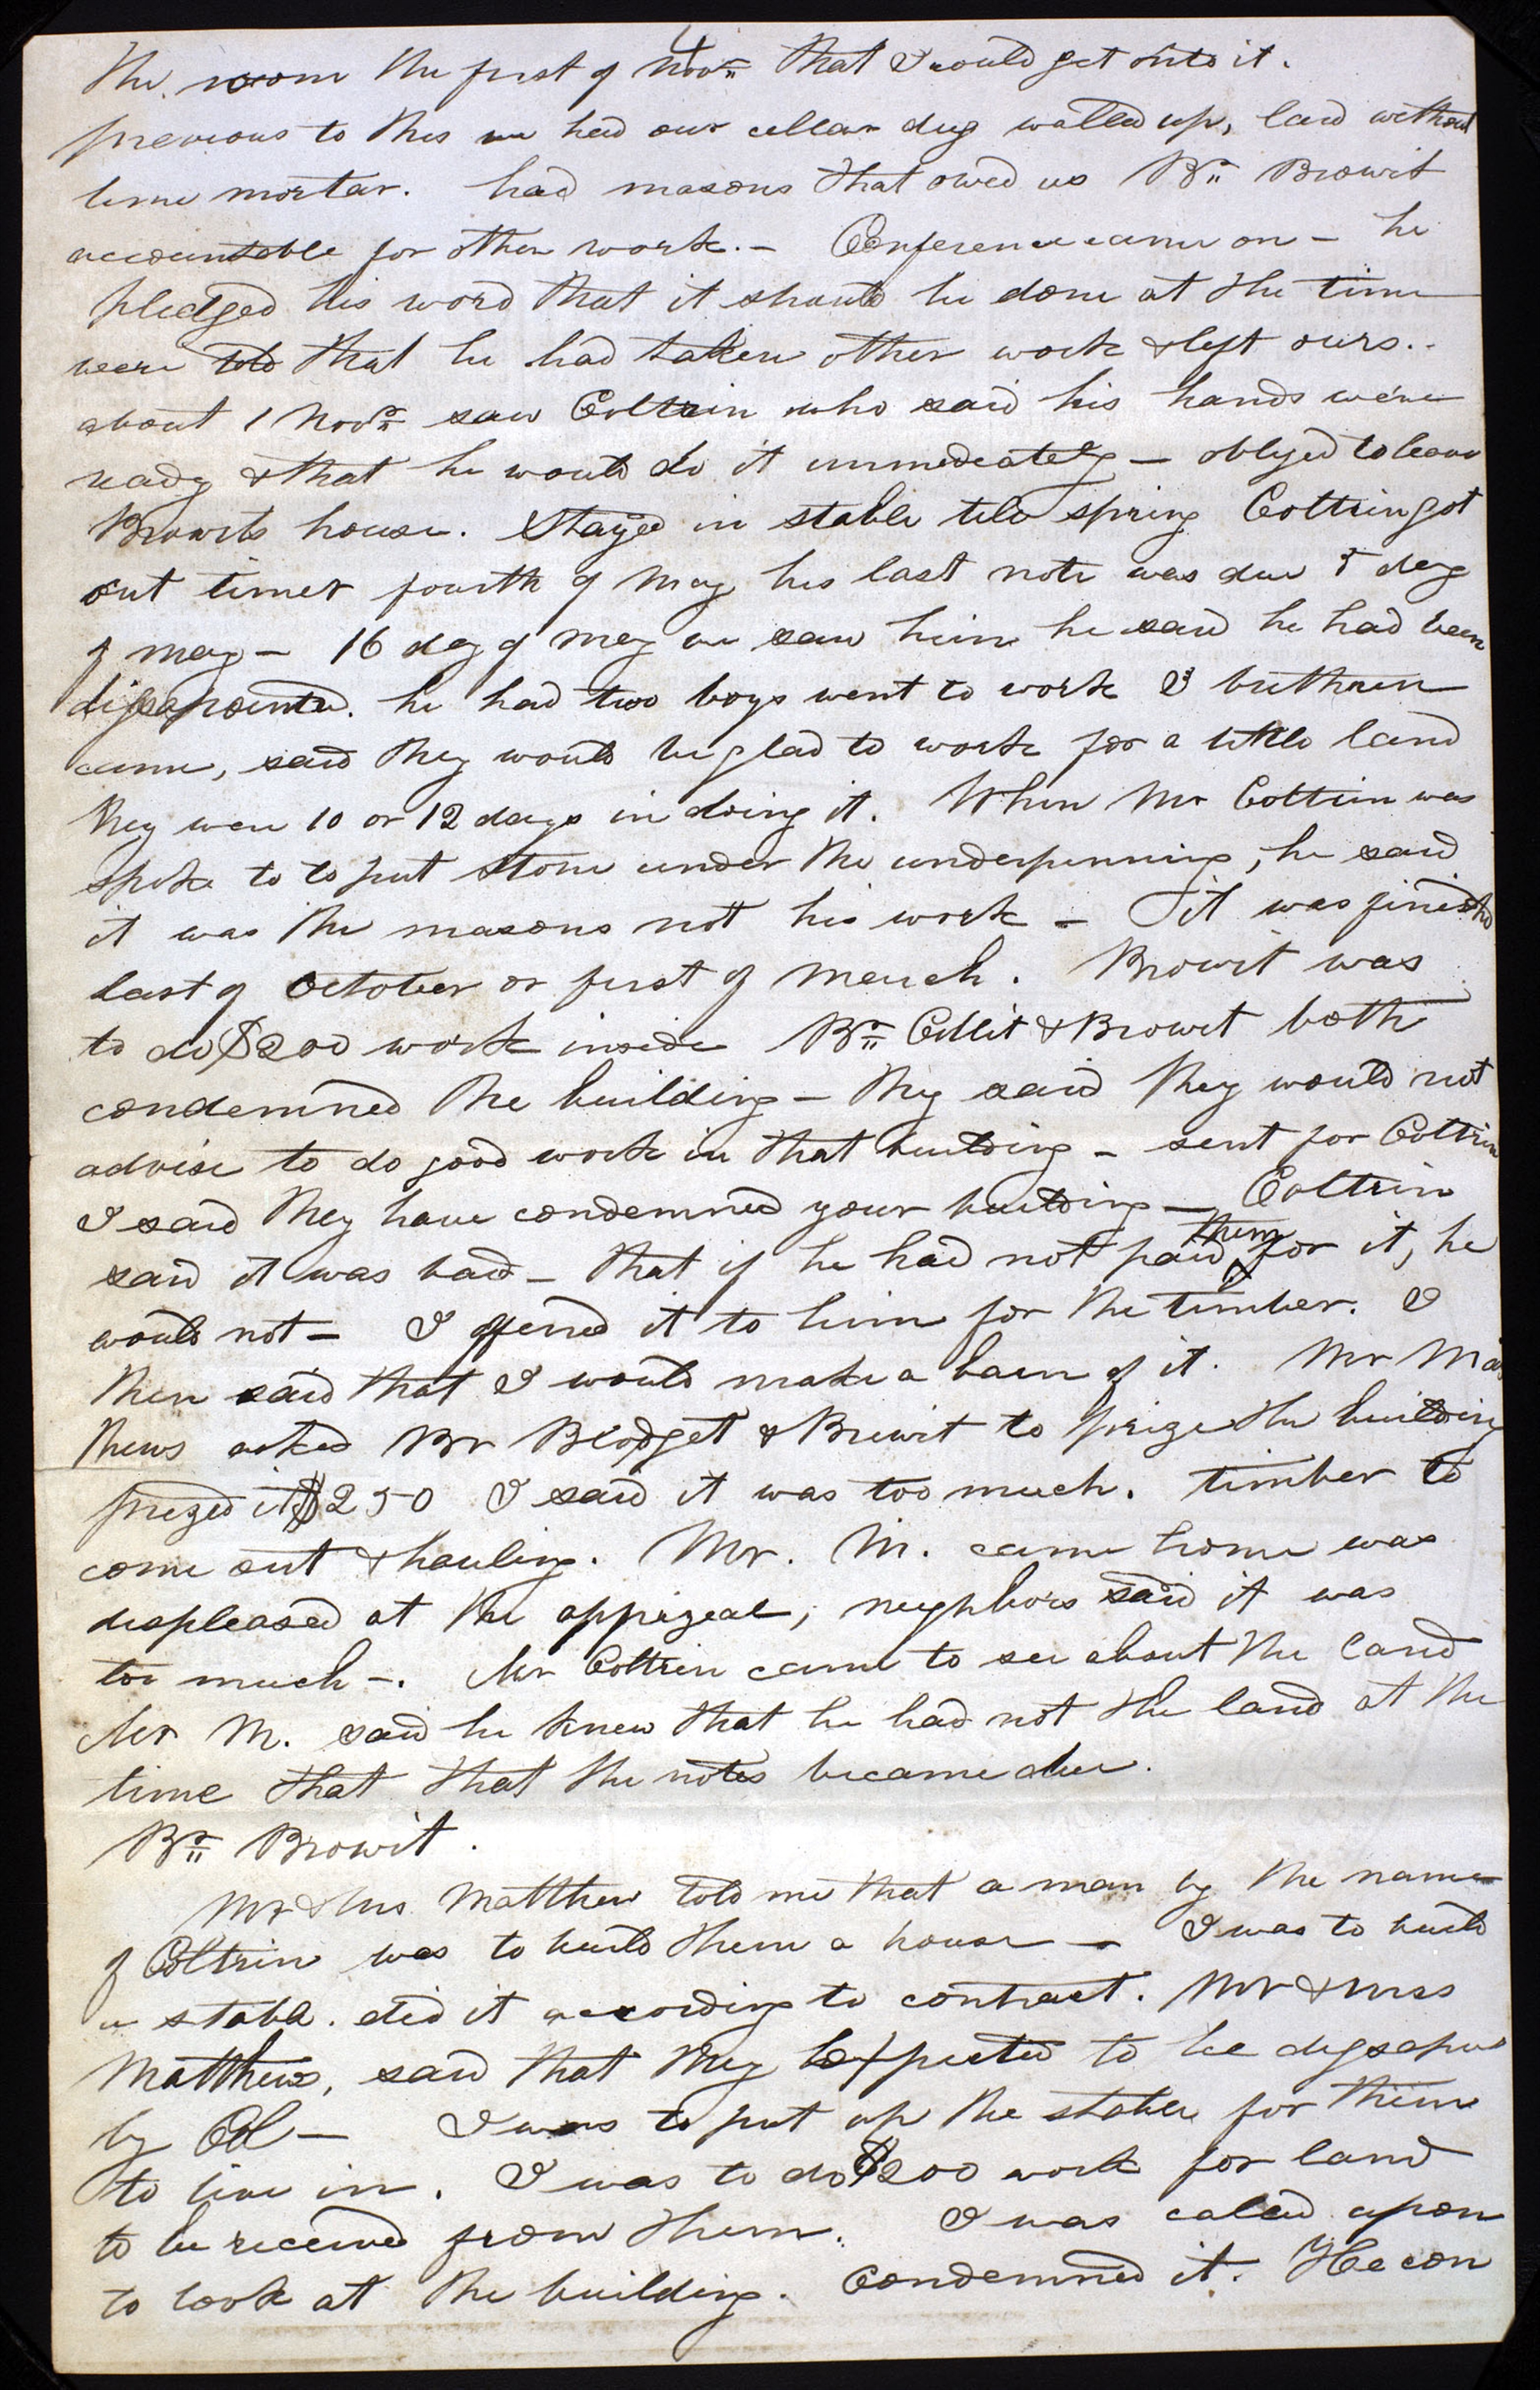 the room the first of Nov.r that I could get into it.
previous to this we had our cellar dug walled up, laid without
lime mortar. had masons that owed us Br. Browit
accountable for other work. — Conference came on — he
pledged his word that it should be done at the time
were told that he had taken other work & left ours. -
about 1 Nov.r saw Coltrin who said his hands were
ready & that he would do it immediately — obliged to leave
Browits house. Stayed in stable till spring Coltrin got
out timer fourth of May his last note was due 8 day
of may — 16 day of May we saw him he said he had been
dissapointed. he had two boys went to work & brethren
came, said they would be glad to work for a little land
they were 10 or 12 days in doing it. When Mr Coltrin was
spoke to to put stone under the underpinning, he said
it was the masons not his work — it was finished
last of October or first of March. Browit was
to do $200 work inside Br. & Browit both
condemned the building — they said they would not
advise to do good work in that building — sent for Coltrin
I said they have condemned your building — Coltrin
said it was bad — that if he had not paid them for it, he
would not — I offered it to him for the timber. I
then said that I would make a barn of it. Mr Mat
thews asked Br Blodget & Brewit to prize the building
prized it $250 I said it was too much. timber to
come out & hauling. Mr. M. came home was
displeased at the apprizeal; neighbors said it was
too much —. Mr Coltrin came to see about the land
Mr M. said he knew that he had not the land at the
time that that the notes became due.
Br. Browit.
Mr & Mrs Matthew told me that a man by the name
of Coltrin was to build them a house — I was to build
a stable. did it according to contract. Mr & Mrss
Matthews, said that they expected to be
by Col — I was to put up the stable for them
to live in. I was to do $200 work for land
to be received from them. I was caled upon
to look at the building. Condemned it. He con